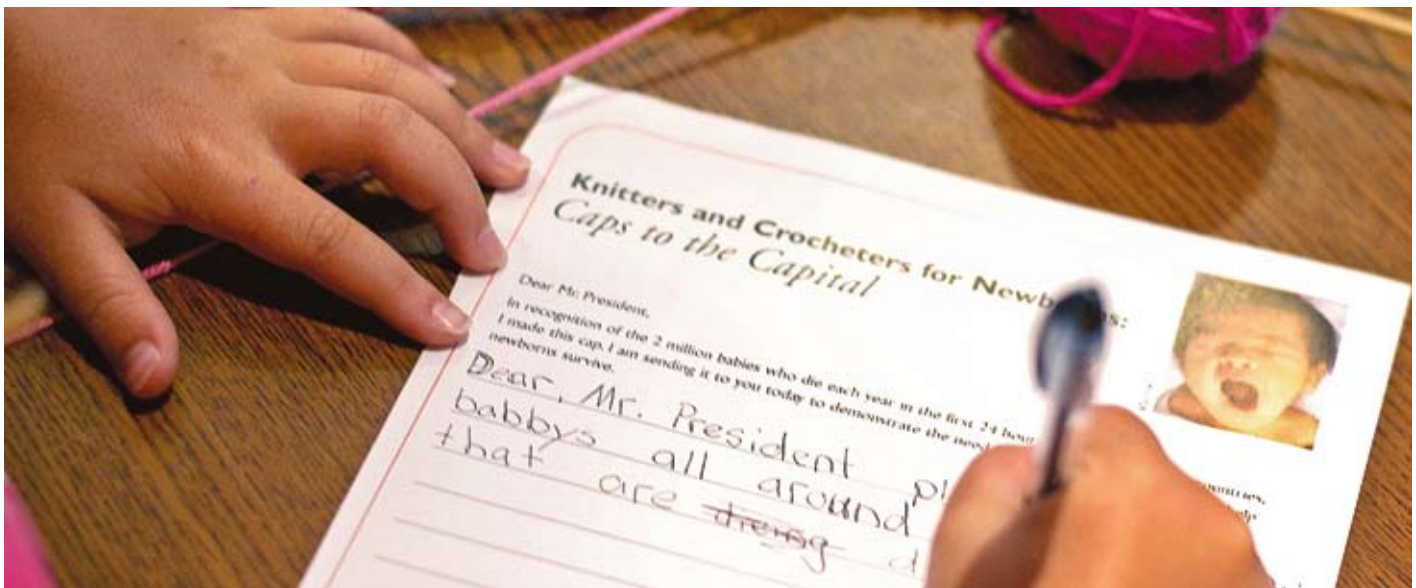 Knitters and Crocheters for
Caps to the Capital
Dear Mr. President,
In recognition of the 2 million babies who die each year in the first 24
I made this cap. I am sending it to you today to demonstrate the need
newborns survive.
Dear, Mr. President
babbys all around
that are